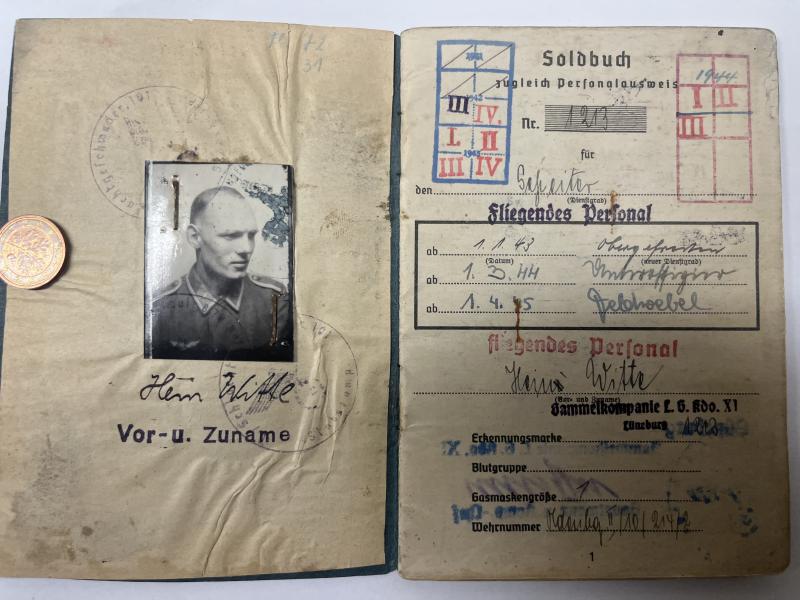 72
31
Heinz Witte
Vor-u. Zuname
1941
1942
III IV.
I. II
1943
III IV
Soldbuch
zugleich Personalausweis
Nr. 1213
für
1944
I II
III
den Gefreiter
(Dienstgrad)
Fliegendes Personal
ab 1.1.43 Obergefreiten
(Datum) (neuer Dienstgrad)
ab 1.D.44 Unteroffizier
ab 1.4.45 Feldwebel
fliegendes Personal
Heinz Witte
(Vor- und Zuname)
Sammelkompanie L. G. Kdo. XI
Lüneburg
Erkennungsmarke
Blutgruppe
Gasmaskengröße 1
Wehrnummer II/10/214/2
1